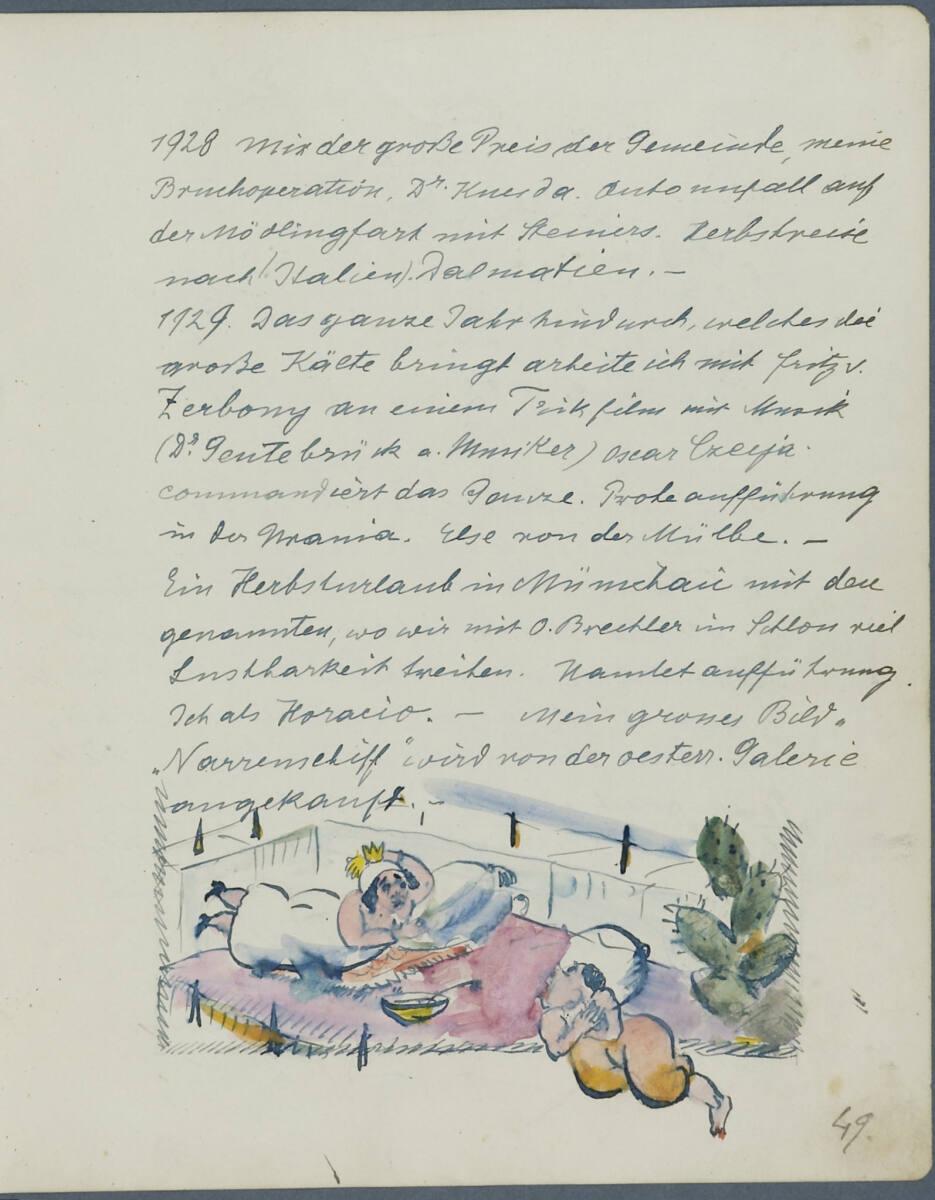 1928 Mir der große Preis der Gemeinde, meine
Bruchoperation, Dr. Knesda. Autounfall auf
der Mödlingfart mit Steiners. Herbstreise
nach (Italien). Dalmatien. –
1929. Das ganze Jahr hindurch, welches die
große Kälte bringt arbeite ich mit Fritz v.
Zerbony an einem Trikfilm mit Musik
(Dr. Gentebrück a. Musiker) Oscar
commandiert das Ganze. Probeaufführung
in der Urania. Else von der Mülbe. –
Ein Herbsturlaub in mit den
genannten, wo wir mit O. Brechler im Schloss viel
Lustbarkeit treiben. Hamletaufführung.
Ich als Horacio. – Mein grosses Bild
„Narrenschiff" wird von der oesterr. Galerie
angekauft. –
49.